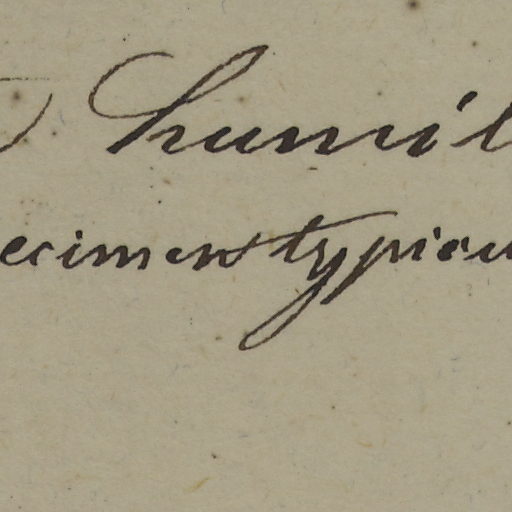 humil
ecimen typicu